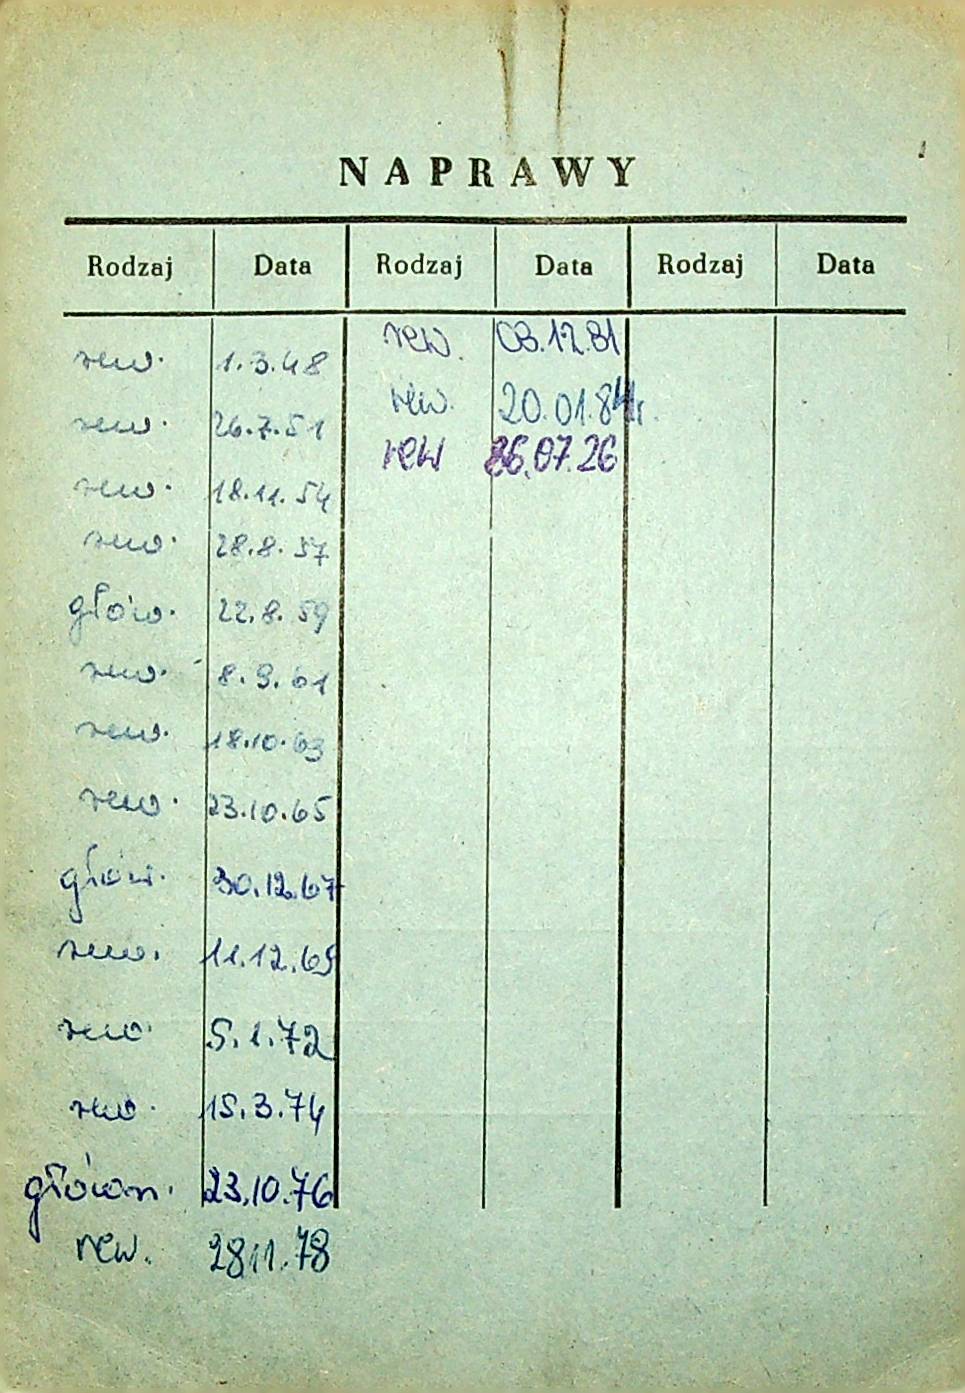 NAPRAWY
Rodzaj Data Rodzaj Data Rodzaj Data
rew. 1.3.48
rew. 26.7.51
rew. 18.11.54
rew. 28.8.57
głów. 22.8.59
rew. 8.9.61
rew. 18.10.63
rew. 23.10.65
głów. 30.12.67
rew. 11.12.69
rew. 5.1.72
rew. 15.3.74
główn. 23.10.76
rew. 28 11.78
rew. 03.12.81
rew. 20.01.84r.
rew 86.07.26